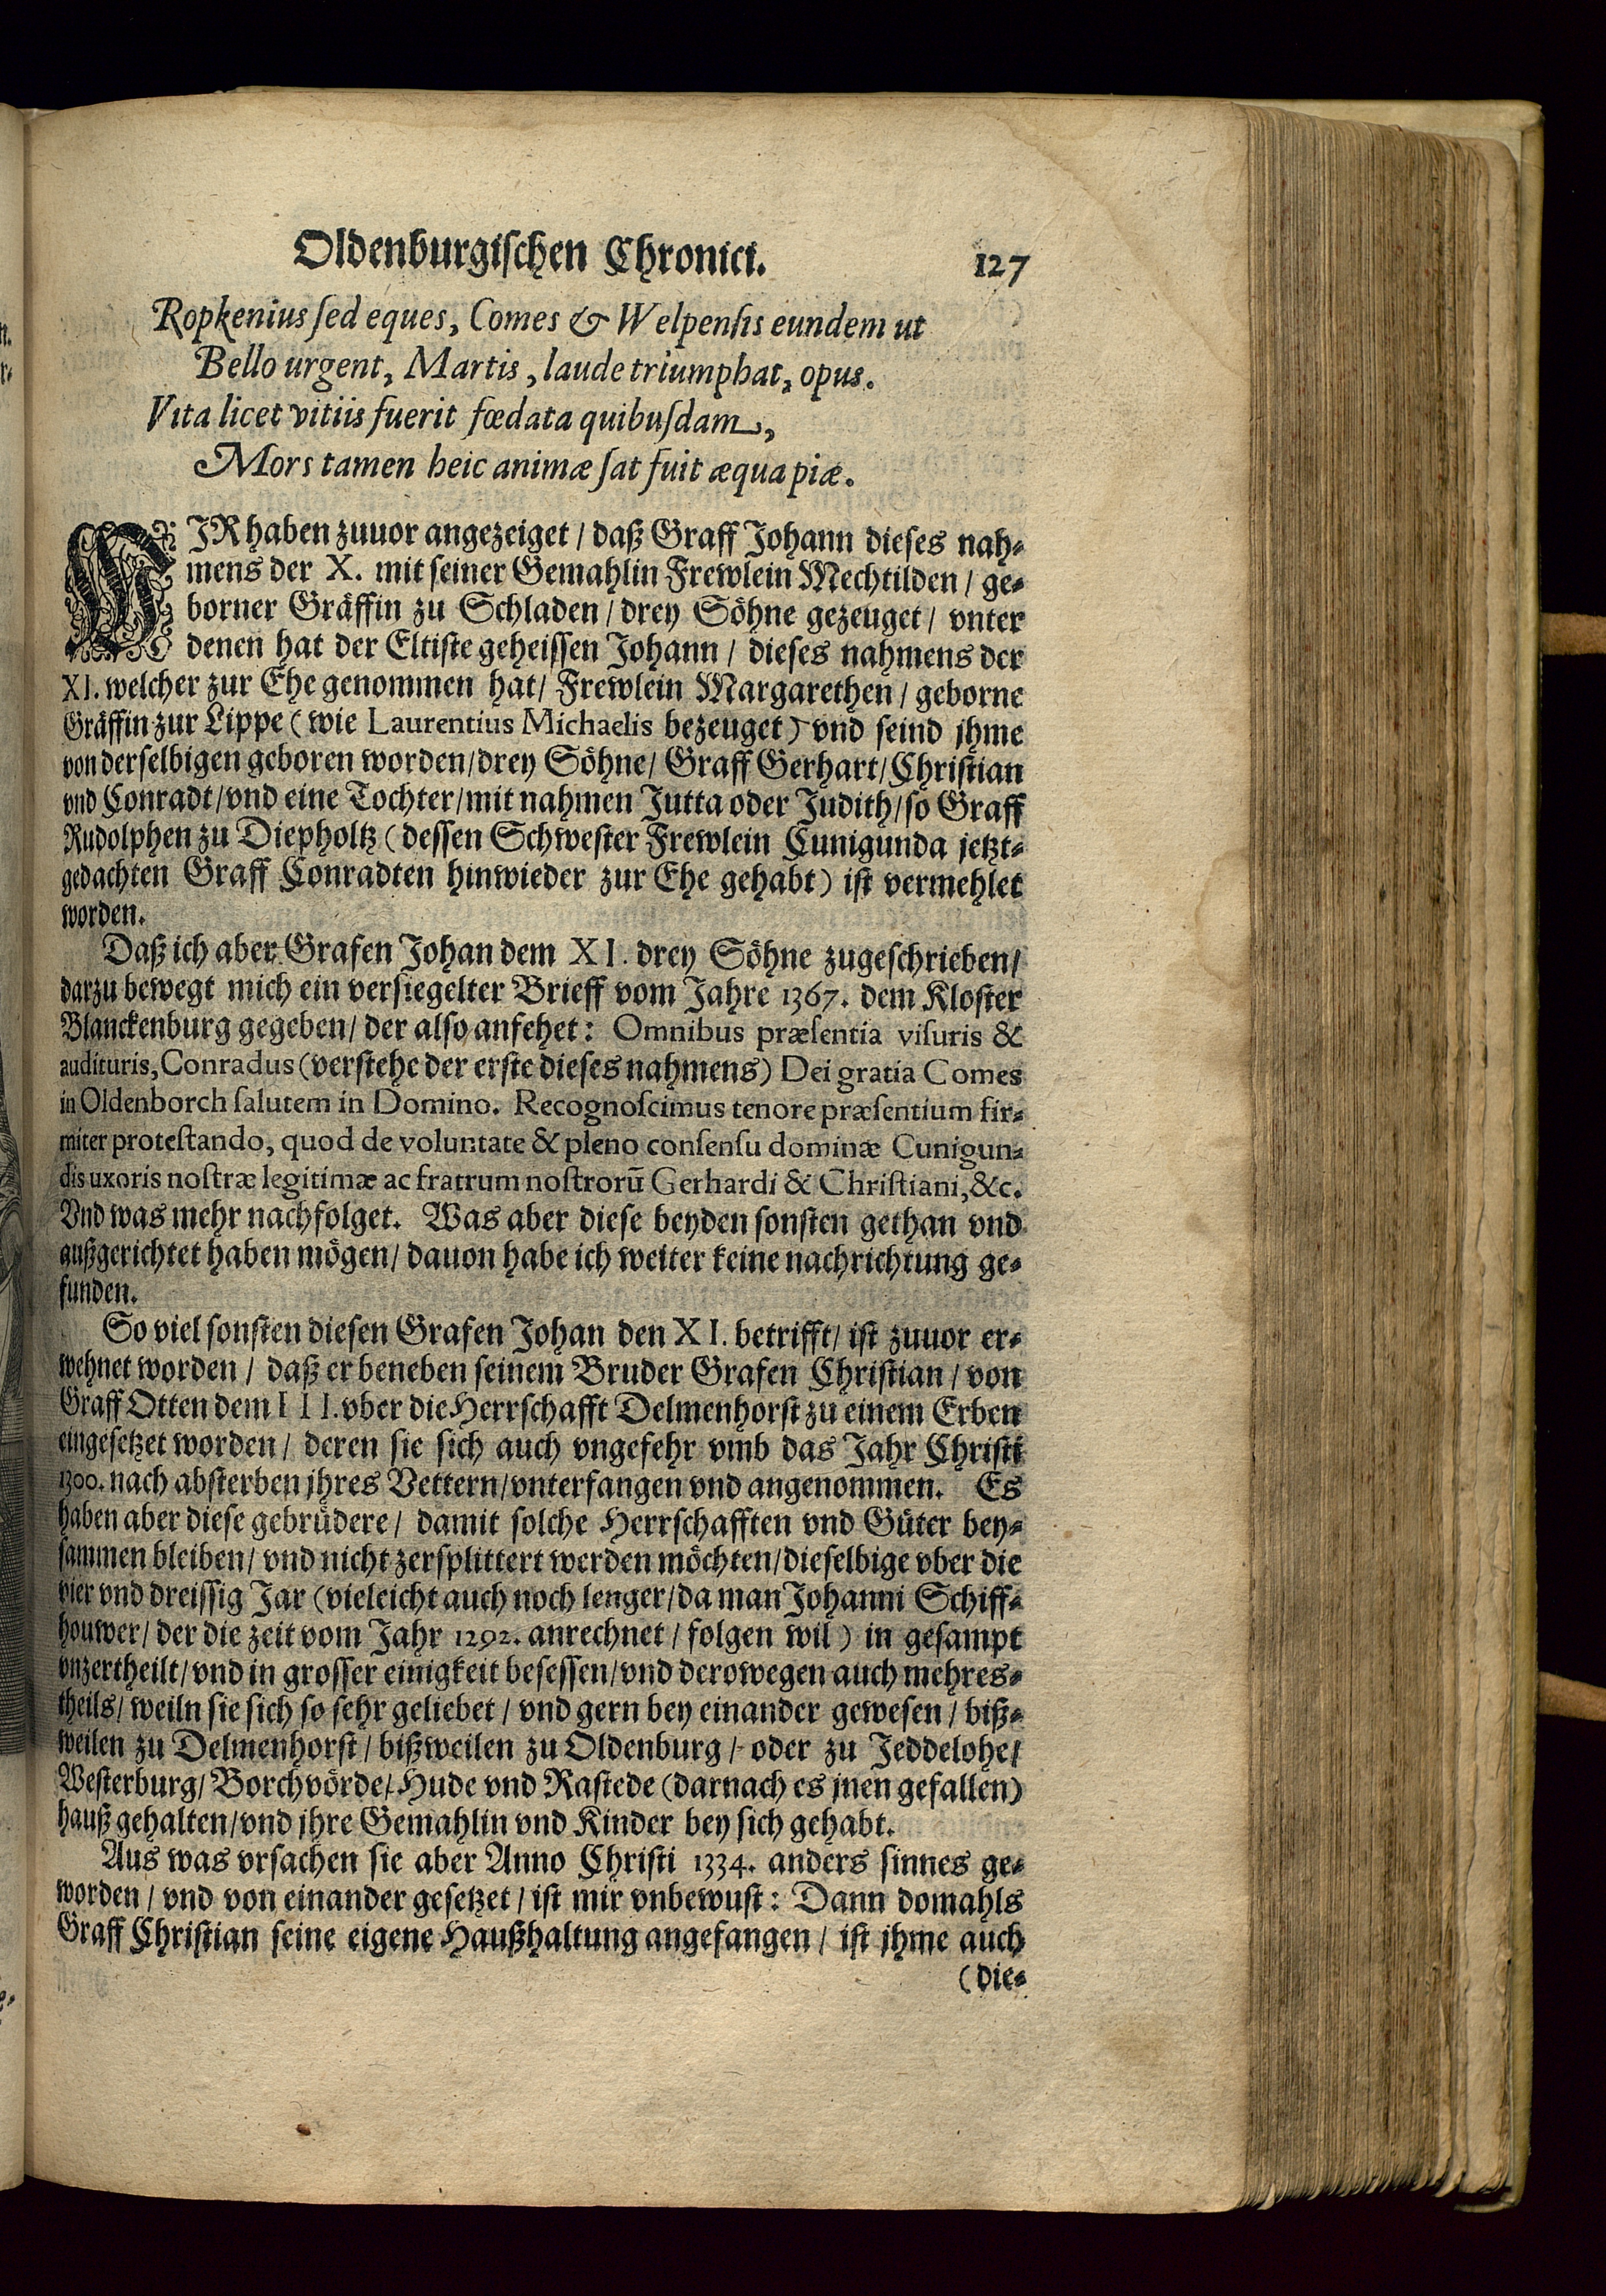 Oldenburgischen Chronici. 127
Ropkenius sed eques, Comes & Welpensis eundem ut
Bello urgent, Martis, laude triumphat, opus.
Vita licet vitiis fuerit fœdata quibusdam,
Mors tamen heic animæ sat fuit æqua piæ.
WJR haben zuuor angezeiget / daß Graff Johann dieses nah-
mens der X. mit seiner Gemahlin Frewlein Mechtilden / ge-
borner Gräffin zu Schladen / drey Söhne gezeuget / vnter
denen hat der Eltiste geheissen Johann / dieses nahmens der
XI. welcher zur Ehe genommen hat / Frewlein Margarethen / geborne
Gräffin zur Lippe (wie Laurentius Michaelis bezeuget) vnd seind jhme
von derselbigen geboren worden / drey Söhne / Graff Gerhart / Christian
vnd Conradt / vnd eine Tochter / mit nahmen Jutta oder Judith / so Graff
Rudolphen zu Diepholtz (dessen Schwester Frewlein Cunigunda jetzt-
gedachten Graff Conradten hinwieder zur Ehe gehabt) ist vermehlet
worden.
Daß ich aber Grafen Johan dem XI. drey Söhne zugeschrieben /
darzu bewegt mich ein versiegelter Brieff vom Jahre 1367. dem Kloster
Blanckenburg gegeben / der also anfehet: Omnibus præsentia visuris &
audituris, Conradus (verstehe der erste dieses nahmens) Dei gratia Comes
in Oldenborch salutem in Domino. Recognoscimus tenore præsentium fir-
miter protestando, quod de voluntate & pleno consensu dominæ Cunigun-
dis uxoris nostræ legitimæ ac fratrum nostrorū Gerhardi & Christiani, &c.
Vnd was mehr nachfolget. Was aber diese beyden sonsten gethan vnd
außgerichtet haben mögen / dauon habe ich weiter keine nachrichtung ge-
funden.
So viel sonsten diesen Grafen Johan den XI. betrifft / ist zuuor er-
wehnet worden / daß er beneben seinem Bruder Grafen Christian / von
Graff Otten dem III. vber die Herrschafft Delmenhorst zu einem Erben
eingesetzet worden / deren sie sich auch vngefehr vmb das Jahr Christi
1300. nach absterben jhres Vettern / vnterfangen vnd angenommen. Es
haben aber diese gebrüdere / damit solche Herrschafften vnd Güter bey-
sammen bleiben / vnd nicht zersplittert werden möchten / dieselbige vber die
vier vnd dreissig Jar (vieleicht auch noch lenger / da man Johanni Schiff-
houwer / der die zeit vom Jahr 1292. anrechnet / folgen wil) in gesampt
vnzertheilt / vnd in grosser einigkeit besessen / vnd derowegen auch mehres-
theils / weiln sie sich so sehr geliebet / vnd gern bey einander gewesen / biß-
weilen zu Delmenhorst / bißweilen zu Oldenburg / oder zu Jeddelohe /
Westerburg / Borchvörde / Hude vnd Rastede (darnach es jnen gefallen)
hauß gehalten / vnd jhre Gemahlin vnd Kinder bey sich gehabt.
Aus was vrsachen sie aber Anno Christi 1334. anders sinnes ge-
worden / vnd von einander gesetzet / ist mir vnbewust: Dann domahls
Graff Christian seine eigene Haußhaltung angefangen / ist jhme auch
(die-